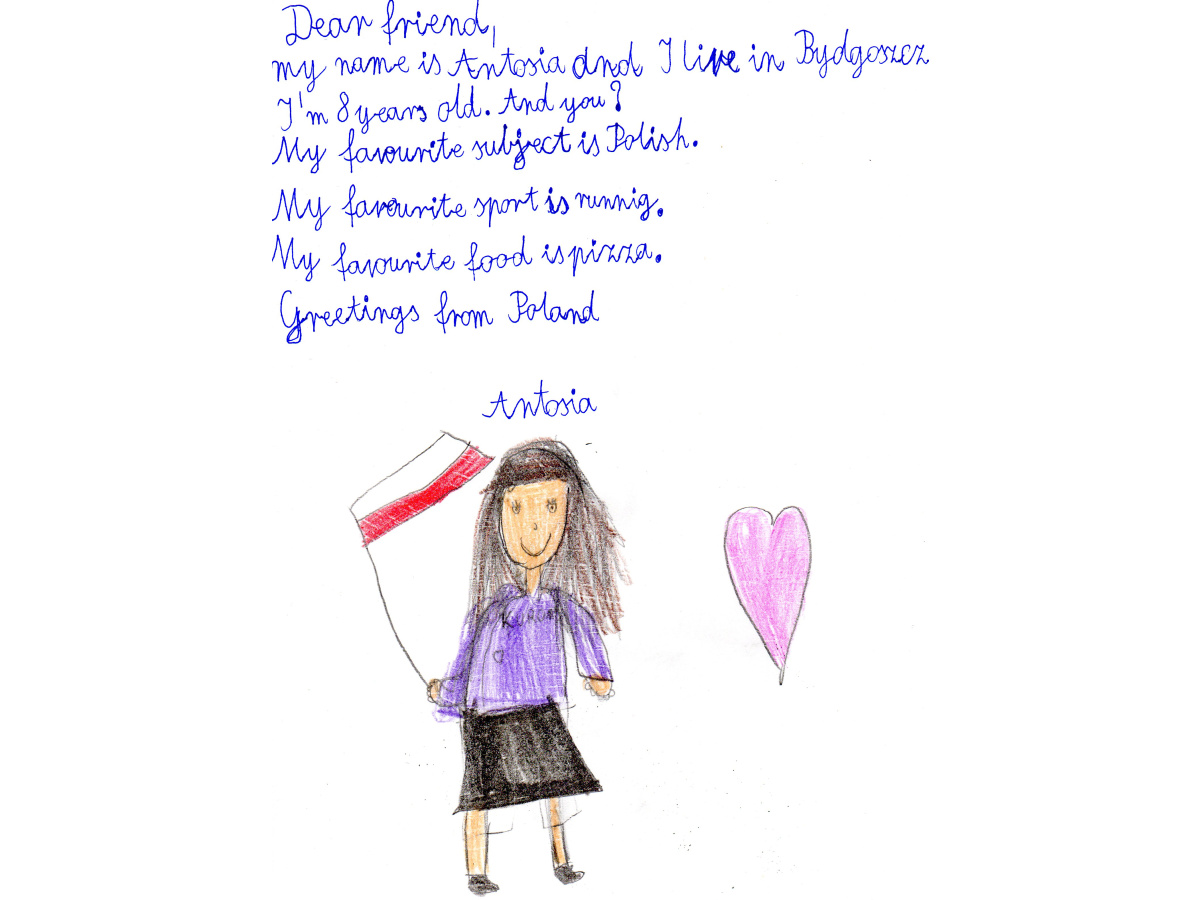 Dear friend,
my name is Antosia and I live in Bydgoszcz
I'm 8 years old. And you?
My favourite subject is Polish.
My favourite sport is runnig.
My favourite food is pizza.
Greetings from Poland
Antosia